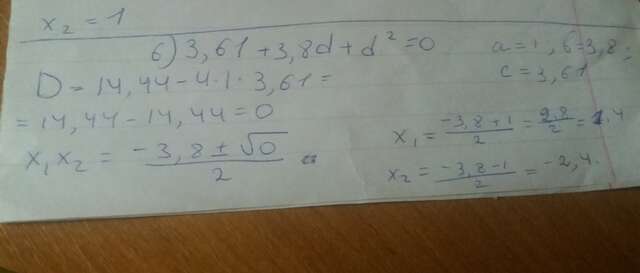 x₂ = 1
б) 3,61 + 3,8d + d² = 0
a = 1; б = 3,8;
c = 3,61
D = 14,44 - 4·1·3,61 =
= 14,44 - 14,44 = 0
x₁x₂ = (-3,8 ± √0)/2
x₁ = (-3,8 + 1)/2 = 2,8/2 = 1,4
x₂ = (-3,8 - 1)/2 = -2,4.